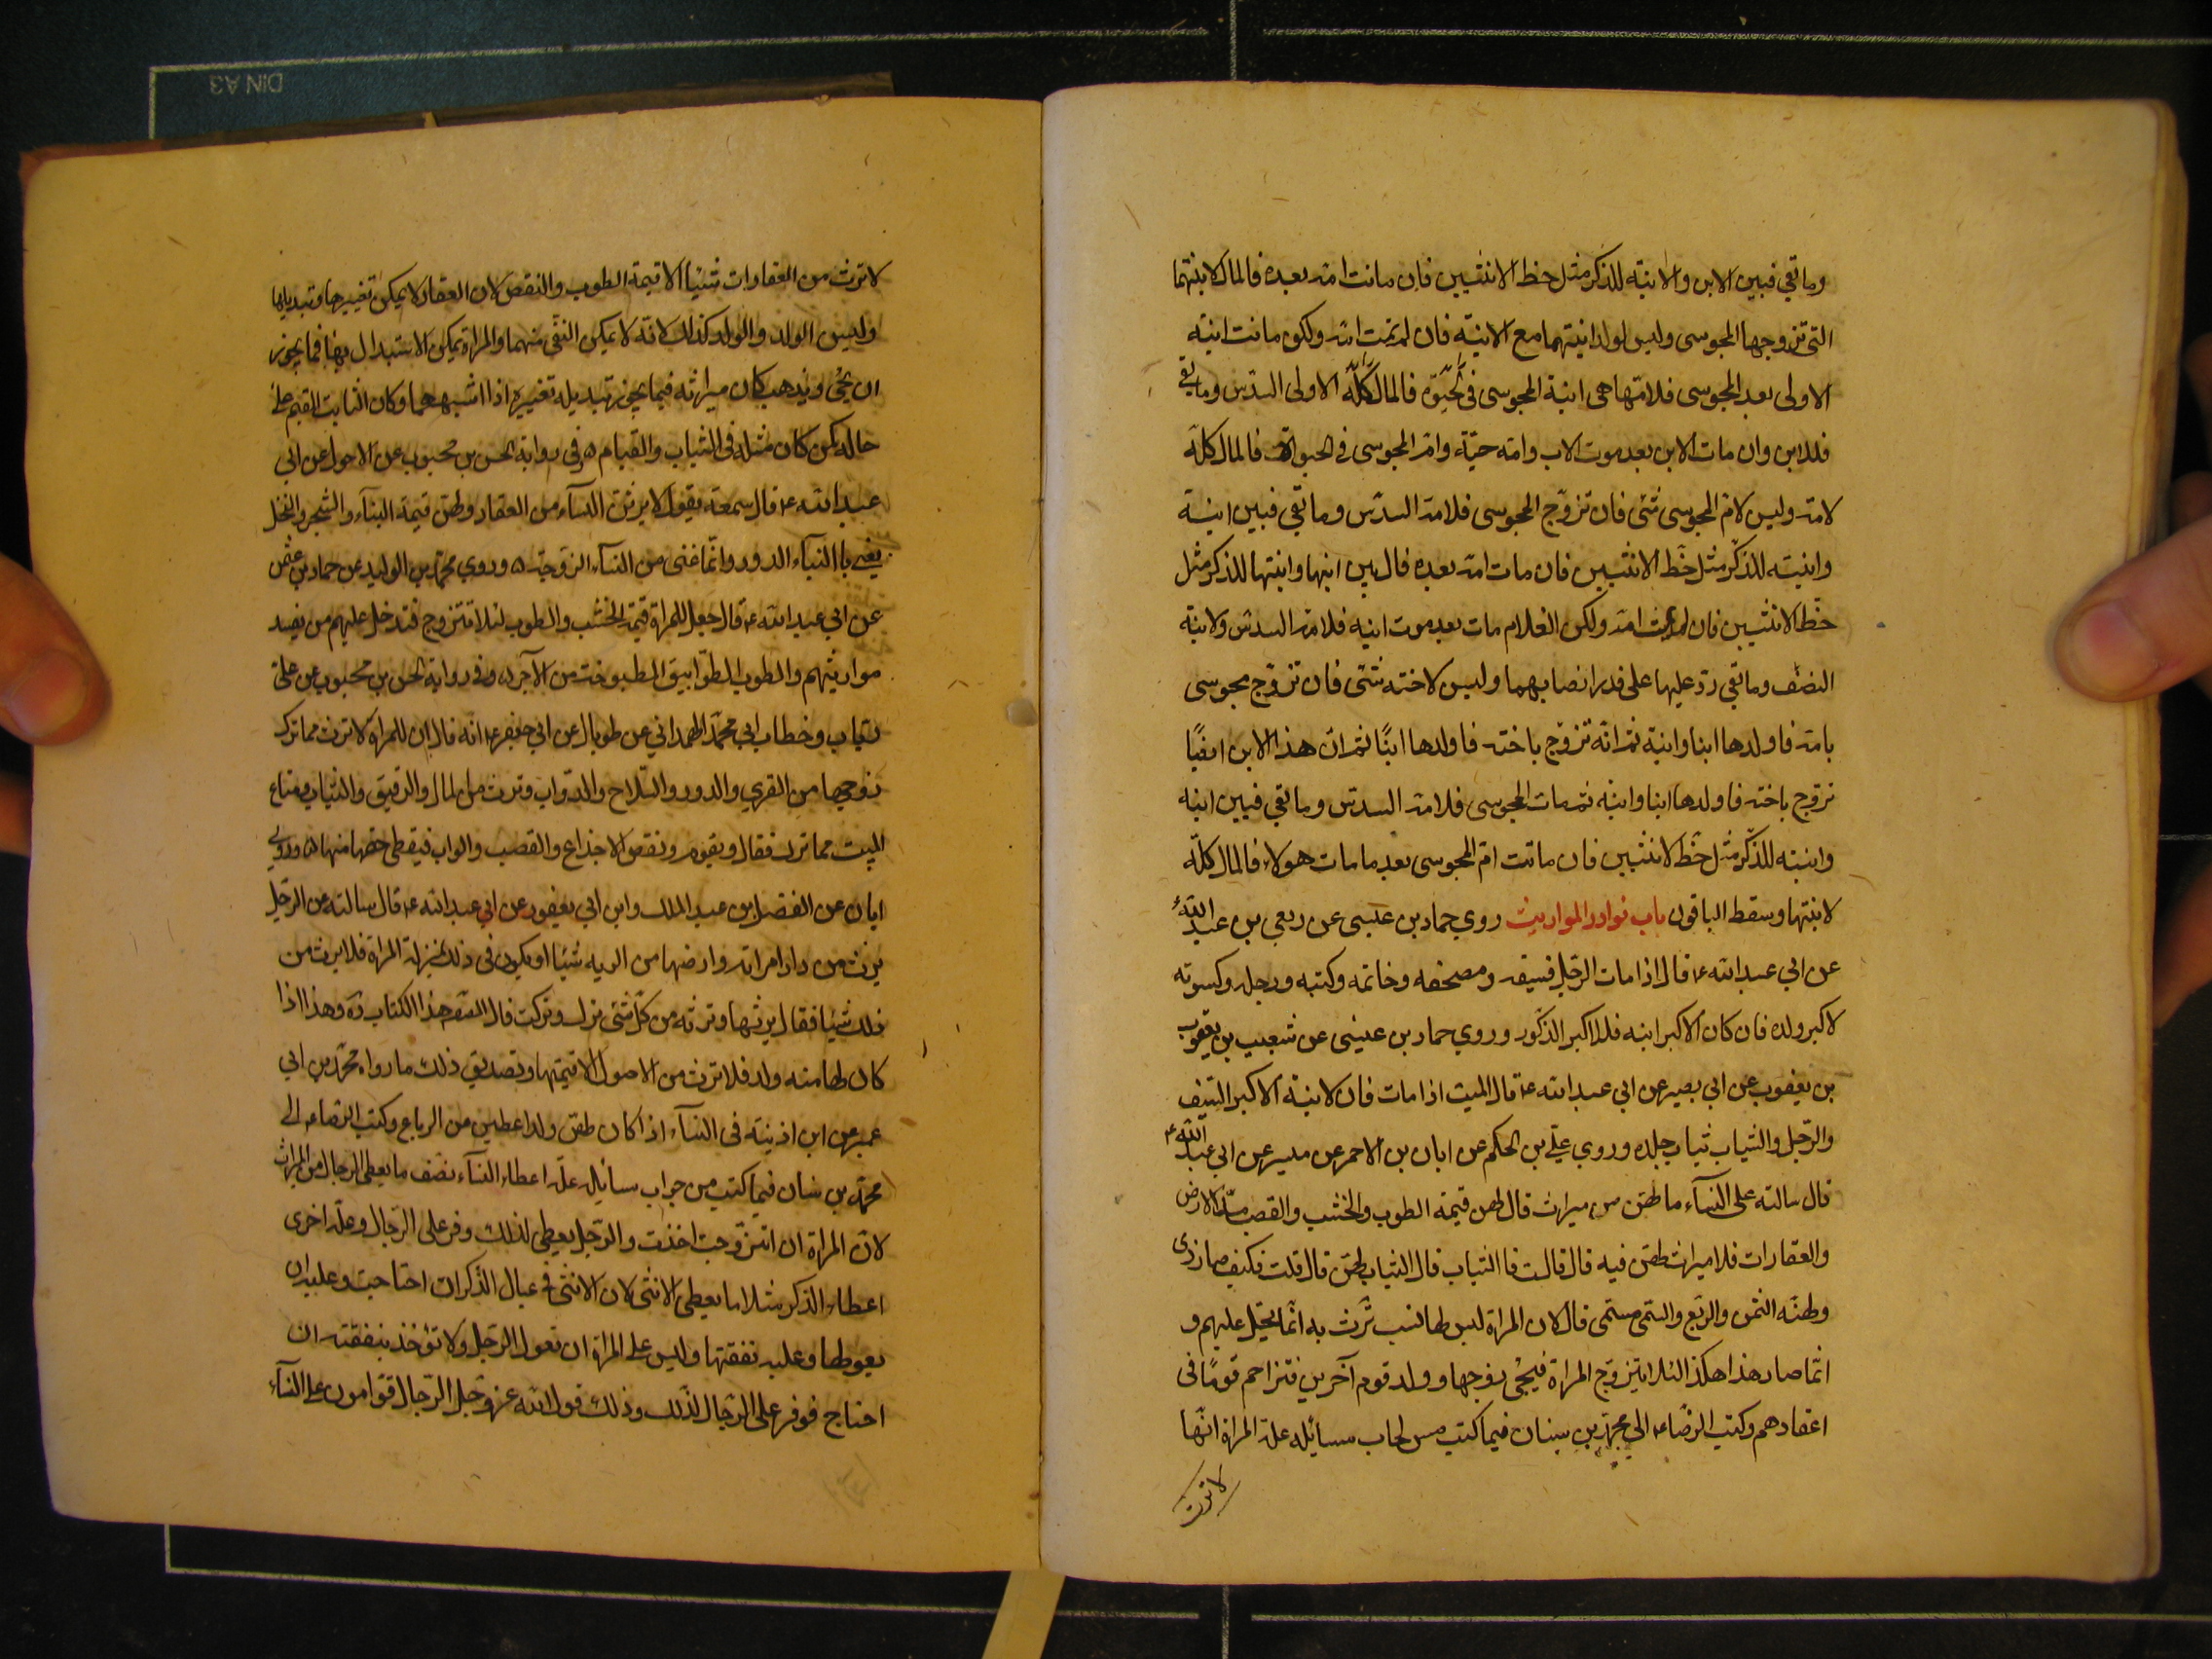 وما بقي فبين الابن والابنة للذكر مثل حظ الانثيين فان ماتت امه بعده فالمال لابنتهما
التي تزوجها المجوسى وليس لولد ابنتهما مع الابنة فان لم تمت امه ولكن ماتت ابنته
الاولى بعد المجوسى فلامّها هى ابنة المجوسى فالمال كلّه الاولى السّدس وما بقي
فللابن وان مات الابن بعد موت الاب وامه حيّة وامّ المجوسى في الحيوة فالمال كلّه
لامه وليس لامّ المجوسى شئى فان تزوّج المجوسى فلامه السدّس وما بقي فبين ابنه
وابنته للذكر مثل حظّ الانثيين فان مات امه بعده فال بين ابنها وابنتها للذكر مثل
حظّ الانثيين فان لم تمت امه ولكن الغلام مات بعد موت ابيه فلامه السدس ولابنة
النصف وما بقي ردّ عليها على قدر انصابهما وليس لاخته شئى فان تزوّج مجوسى
بامه فاولدها ابنا وابنة ثم انّه تزوّج باخته فاولدها ابنًا ثم انّ هذا الابن ايضًا
تزوّج باخته فاولدها ابنا وابنه ثم مات المجوسى فلامه السدّس وما بقي فبين ابنه
وابنته للذّكر مثل حظّ الانثيين فان ماتت امّ المجوسى بعد ما مات هولاء فالمال كلّه
لابنتها وسقط الباقون باب نوادر المواريث روي حماد بن عيسى عن ربعي بن عبد الله
عن ابي عبد الله ع قال اذا مات الرّجل فسيفه ومصحفه وخاتمه وكتبه ورحله وكسوته
لاكبر ولده فان كان الاكبر ابنه فللاكبر الذكور وروي حماد بن عيسى عن شعيب بن يعقوب
بن يعقوب عن ابي بصير عن ابي عبد الله ع قال الميت اذا مات فان لابنه الاكبر السّيف
والرّجل والثياب ثياب جلده وروي علي بن الحكم عن ابان بن الاحمر عن ميسر عن ابي عبد الله ع
قال سالته على النسآء ما لهن من ميراث قال لهن قيمة الطوب والخشب والقصب الارض
والعقارات فلا ميراث لهن فيه قال قالت فا الثياب قال الثياب لهنّ قال قلت فكيف صار ذى
ولهذه الثمن والربع مستمى قال لان المراة ليس لها نسب ترث به انّما دخيل عليهم و
انّما صار هذا هكذا لئلا يتزوّج المراة فيجئى زوجها وولد قوم آخرين فتزاحم قومًا فى
عقارهم وكتب الرضا ع الي محمّد بن سنان فيما كتب من لجاب مسائله علّة المراة انّها
لا ترث
لا ترث من العقارات شيئا الا قيمة الطوب والنقض لان العقار لا يمكن تغييرها وتبديلها
وليس الولد والولد كذلك لانّه لا يمكن التفّي منهما والمراة يمكن الاستبدال بها فما يجوز
ان يجئ ويذهب كان ميراثه فيما يجوز تبديله تغييره اذا اشبههما وكان الثابت المقيم على
حاله كمن كان مثله فى الثياب والقيام وفي رواية الحسن بن محبوب عن الاحول عن ابي
عبد الله ع قال سمعته يقول لا يرثن النسآء من العقار ولهن قيمة البنآء والشجر والنخل
يعني با البنآء الدور وانّما عنى من النسآء الزوجة وروي محمّد بن الوليد عن حماد بن عثمن
عن ابي عبد الله ع قال جعل للمراة قيمة الخشب والطوب لئلا تتزوج فتدخل عليهم من يفسد
مواريثهم والطوب الطوّابيق المطبوخة من الآجر وفي رواية الحسن بن محبوب عن على
رئاب وخطاب ابي محمّد الهمداني عن طربال عن ابي جعفر ع انه قال ان المراة لا ترث مما ترك
زوجها من القري والدور والسّلاح والدّواب وترث من المال والرقيق والثياب ومتاع
الميت مما ترك فقال ويقوم ونقض الاجذاع والقصب والواب فيقطى حقها منها وروي
ابان عن الفضل بن عبد الملك وابن ابي يعفور عن ابي عبد الله ع قال سالته عن الرّجل
يرث من دار امراته وارضها من التربه شيئا او يكون في ذلك بمنزلة المراة فلا يرث من
ذلك شيئا فقال يرثها وترثه من كلّ شئى ترك وتركت قال المصنف هذا الكتاب ره وهذا اذا
كان لها منه ولد فلا ترث من الاصول الا قيمتها وتصديق ذلك ما رواه محمّد بن ابي
عمير عن ابن اذينة فى النسآء اذا كان لهن ولد اعطين من الرباع وكتب الرضا ع الى
محمّد بن سنان فيما كتب من جواب مسائله علّة اعطاء النسآء نصف ما يعطى الرجال من الميراث
لان المراة ان اتتزوجت اخذت والرّجل يعطى لذلك وفر على الرّجال وعلّة اخرى
اعطاء الذكر مثلا ما يعطى الانثى لان الانثى في عيال الذّكر ان احتاجت وعليه ان
يعولها وعليه نفقتها وليس على المراة ان تعول الرّجل ولا تؤخذ بنفقته ان
احتاج فوفر على الرّجال لذلك وذلك قول الله عزّ وجلّ الرّجال قوّامون على النسآء